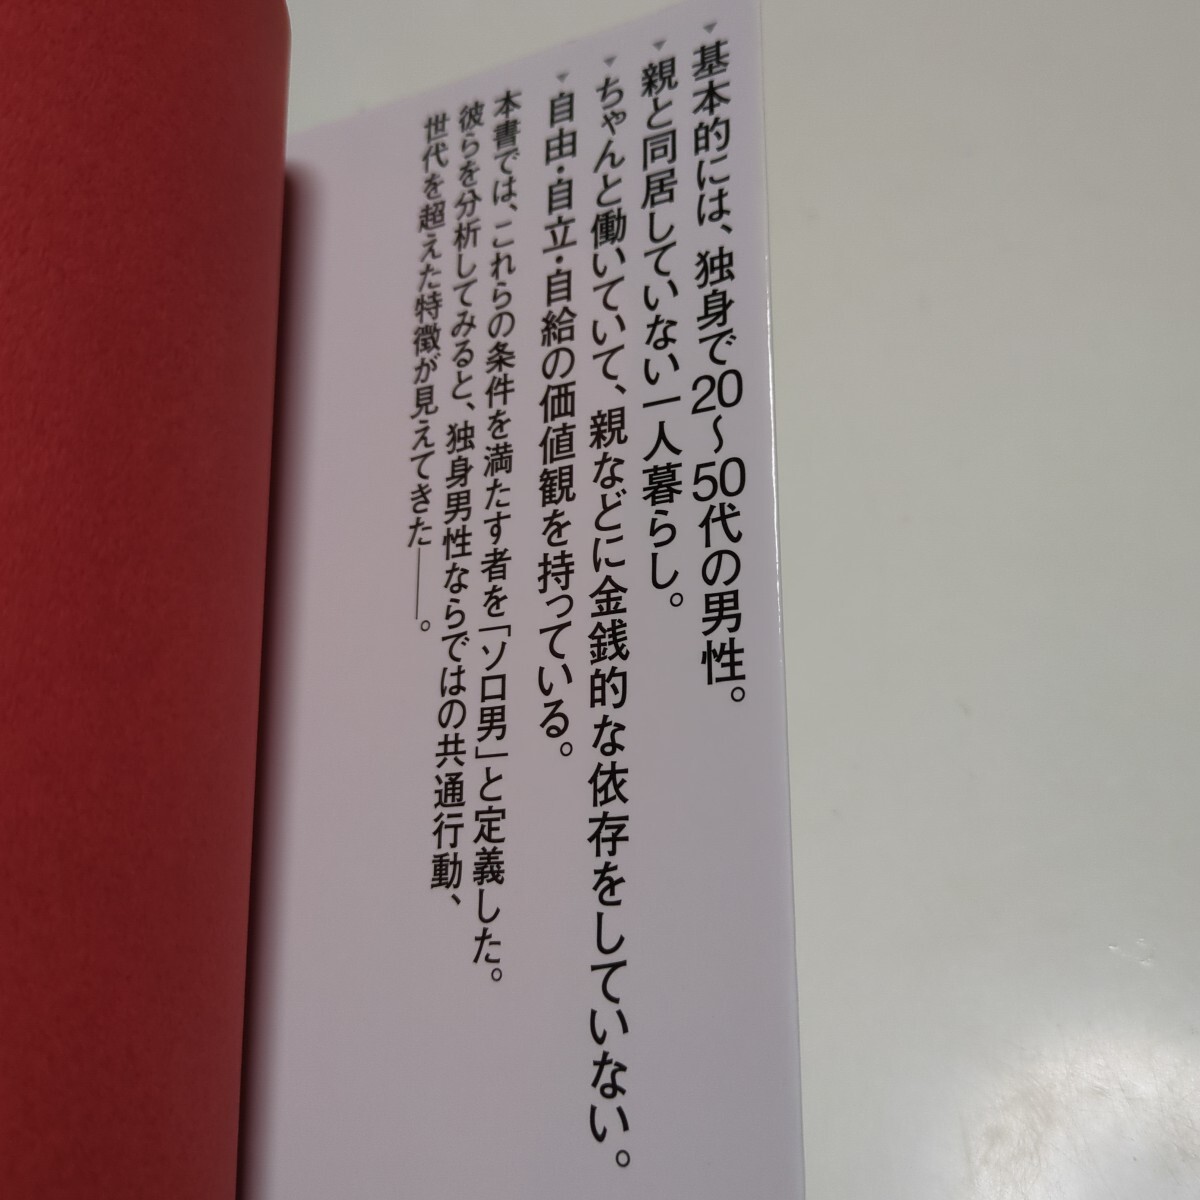 ▼基本的には、独身で20〜50代の男性。
▼親と同居していない一人暮らし。
▼ちゃんと働いていて、親などに金銭的な依存をしていない。
▼自由・自立・自給の価値観を持っている。
本書では、これらの条件を満たす者を「ソロ男」と定義した。
彼らを分析してみると、独身男性ならではの共通行動、
世代を超えた特徴が見えてきた――。